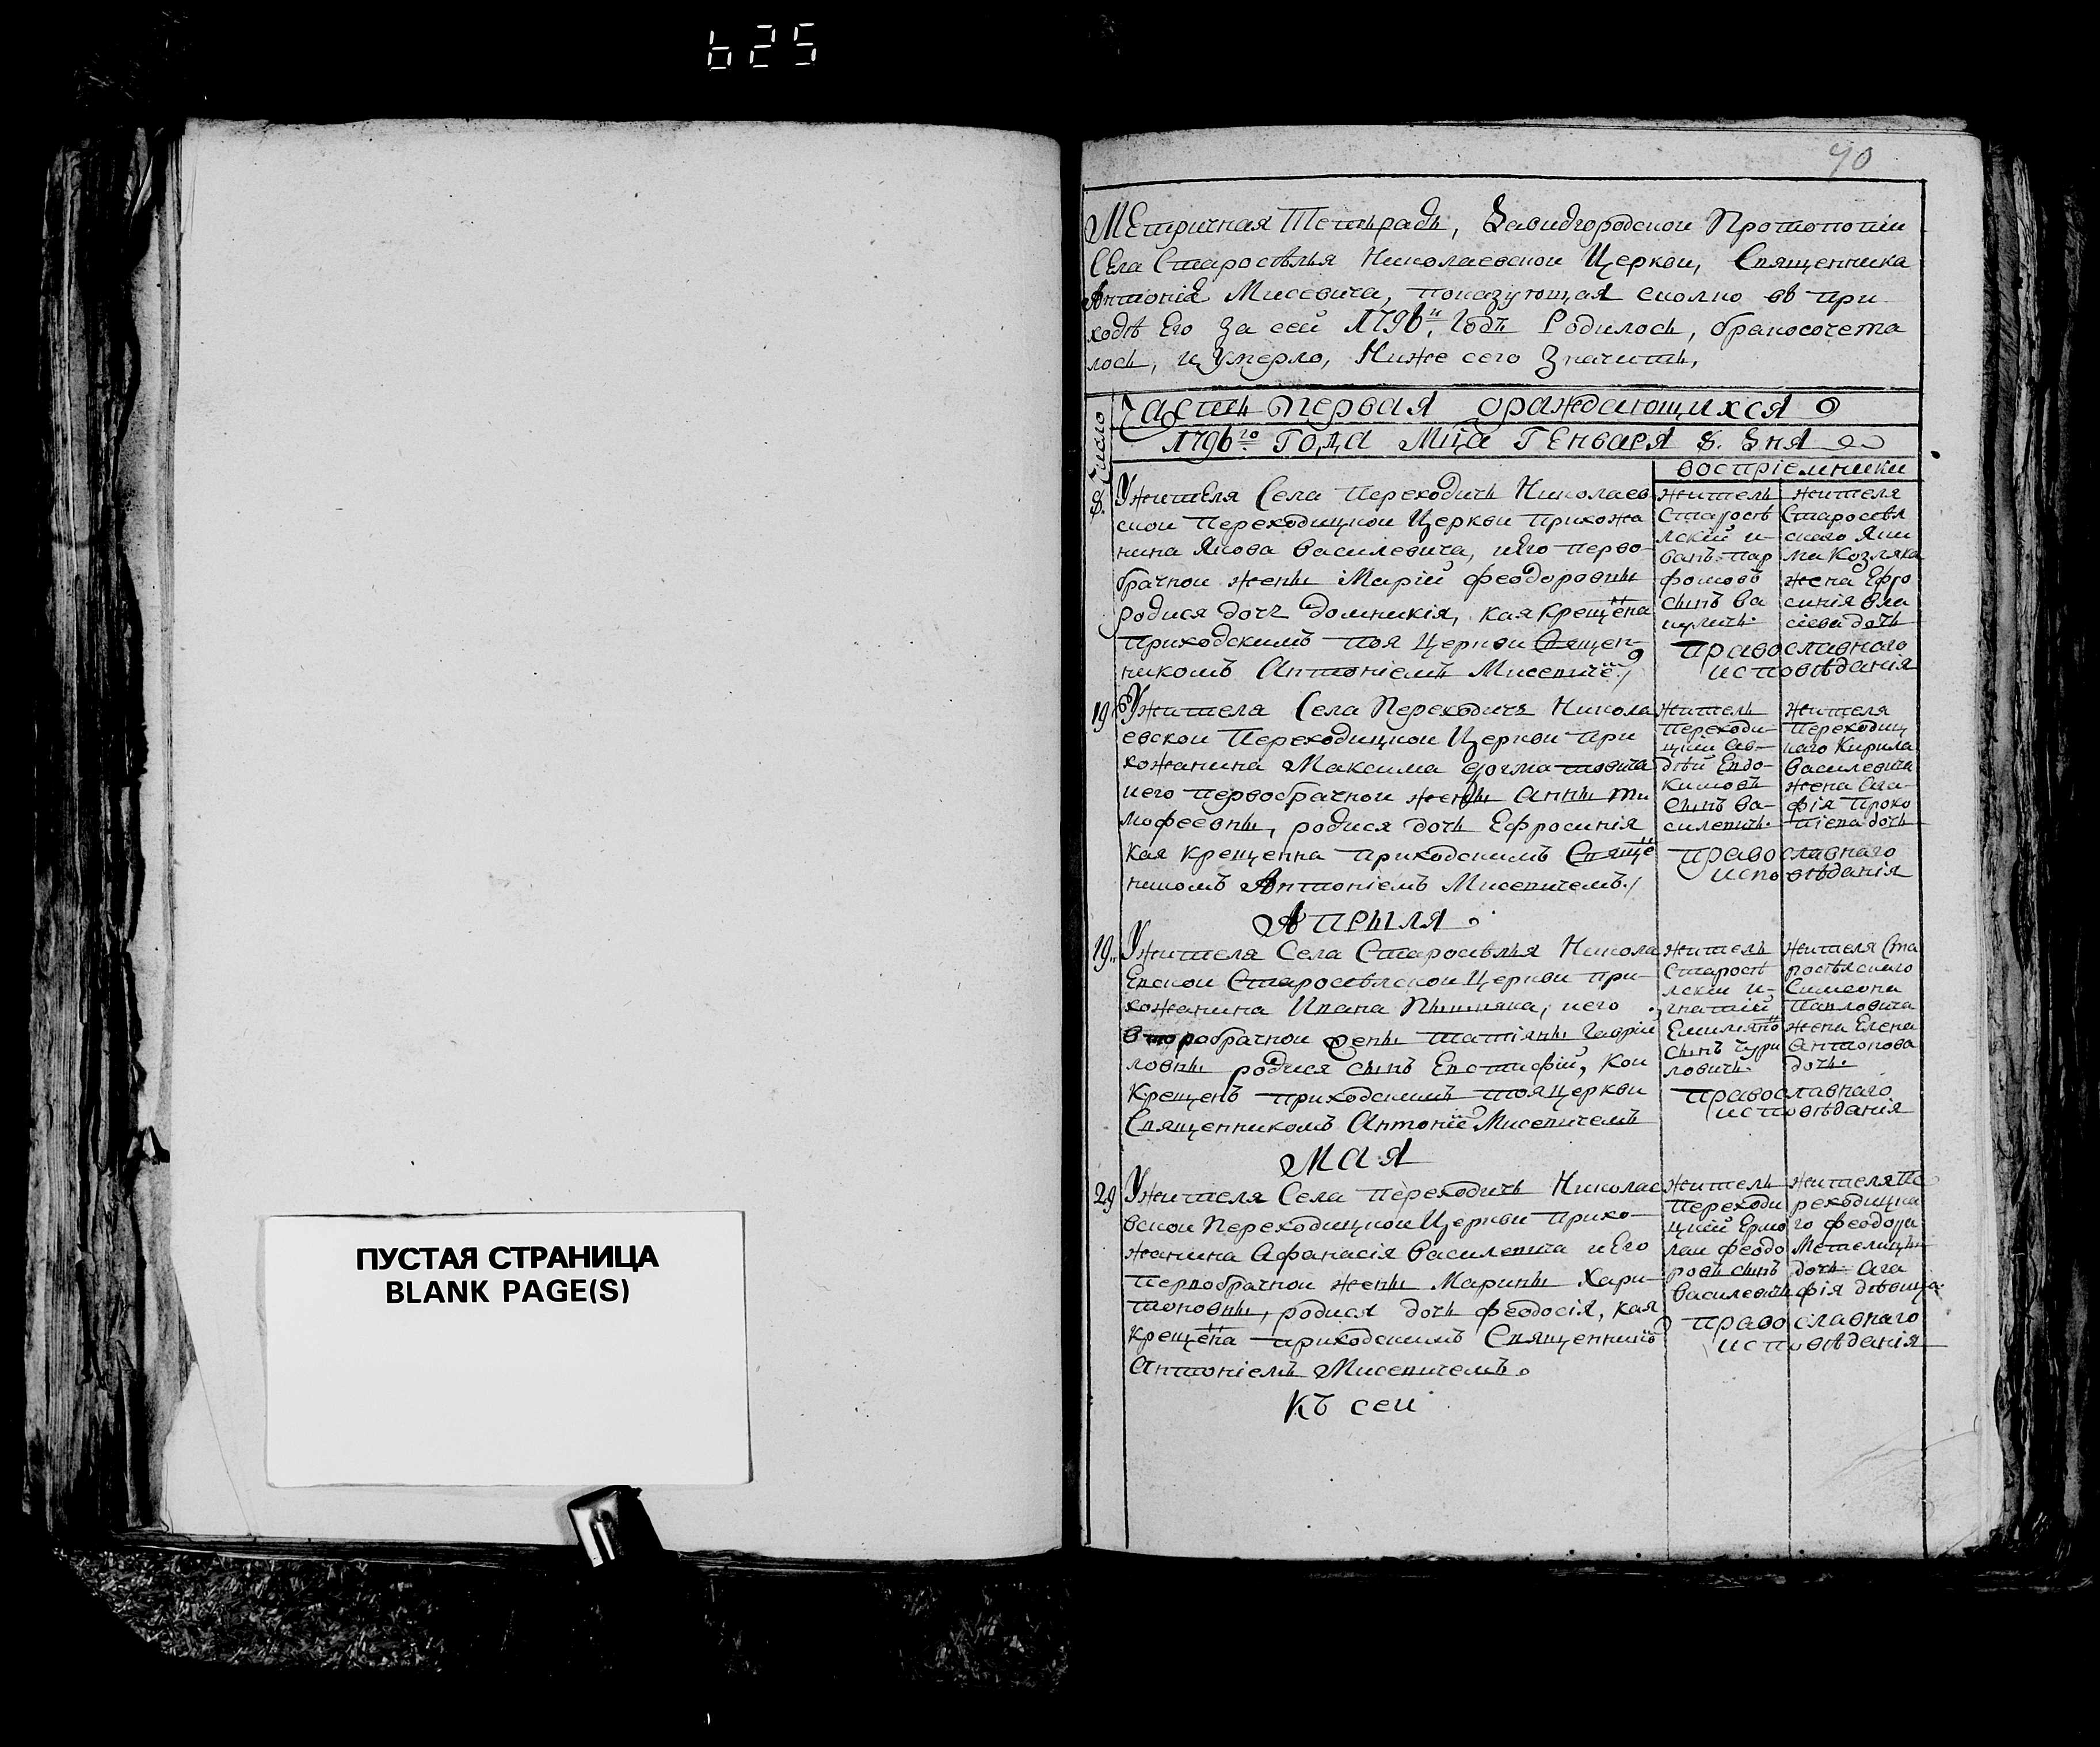 625
ПУСТАЯ СТРАНИЦА
BLANK PAGE(S)
90
Метричная Тетьрадь, Давидгородской Протопопіи
Села Старосѣлья Николаевской Церкви, Священника
Антонія Мисевича, показующая сколко въ при
ходѣ Его За сей 1796й Годъ Родилось, бракосочета
лось, и Умерло, Ниже сего Значитъ,
Число
Часть первая ораждающихся
1796го Года Мца Генваря 8. Дня
воспріемники
8.
Ужителя Села Переходичъ Николаев
ской Переходицкой Церкви прихожа
нина Якова Василевича, иЕго перво-
брачной жены Маріи Феодоровны
родися дочъ Домникія, кая Крещена
приходскимъ тоя Церкви Священ-
никомъ Антоніемъ Мисевичё
житель
Старосѣ
лскій и-
ванъ пар
фоновъ
сынъ Ва
жителя
Старосѣл
ского Яки
ма Козляка
жена Ефро
синія Вла
сіева дочь
православнаго
исповѣданія
19
Ужителя Села Переходичъ Никола
евской Переходицкой Церкви при
хожанина Максима
иего первобрачной жены Анны Ти
мофеевны, родися дочь Ефросинія
кая крещенна приходскимъ Свящё
никомъ Антоніемъ Мисевичемъ
житель
Переходи-
цкій Ав-
дѣй Евдо-
кимовъ
сынъ Ва-
силевичь.
жителя
Переходиц
каго Кирила
Василевича
жена Ага-
фія Проко
піева дочь
православнаго
исповѣданія
Апрыля
19
Ужителя Села Старосѣлья Никола
Евской Старосѣлской Церкви при-
хожанина Ивана иего
второбрачной жены Татіяны Гаврїи
ловны родися сынъ Евстафій, кои
Крещенъ приходскимъ тояцеркви
Священникомъ Антоніё Мисевичемъ
житель
Старосѣ
лскій и-
гнатій
Емиліянő
сынъ Чури
ловичъ.
жителя Ста
росѣлского
Симеона
Павловича
жена Елена
Антонова
дочь.
православнаго
исповѣданія
Мая
29
Ужителя Села Переходичъ Николае
вской Переходицкой Церкви прихо-
жанина Афанасія Василевича иЕго
первобрачной жены Марины Хари-
тоновны, родися дочь Феодосія, кая
крещена приходскимъ Священникő
Антоніемъ Мисевичемъ.
житель
Переходи
цкій Ермо
лаи Феодо
ровъ сынъ
Василевичь
жителя Пе
реходицка
го Феодора
Метелицы
дочь Ага
фія дѣвица
православнаго
исповѣданія
Къ сей